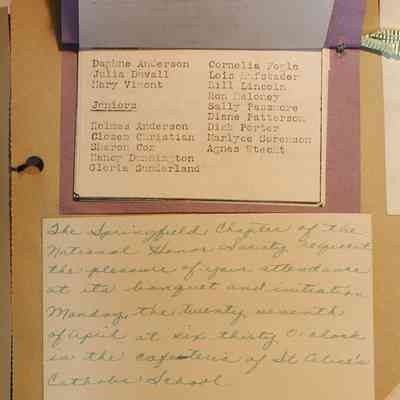 Daphne Anderson
Julia Duvall
Mary Vimont
Juniors
Holmes Anderson
Closen Christian
Sharon Cox
Nancy Dunnington
Gloria Sunderland
Cornelia Fogle
Lois Hufstader
Bill Lincoln
Ron Maloney
Sally Passmore
Diane Patterson
Dick Porter
Marlyce Sorenson
Agnes Stecht
The Springfield Chapter of the
National Honor Society request
the pleasure of your attendance
at its banquet and initiation
Monday, the twenty seventh
of April at six thirty O'clock
in the cafeteria of St Alice's
Catholic School